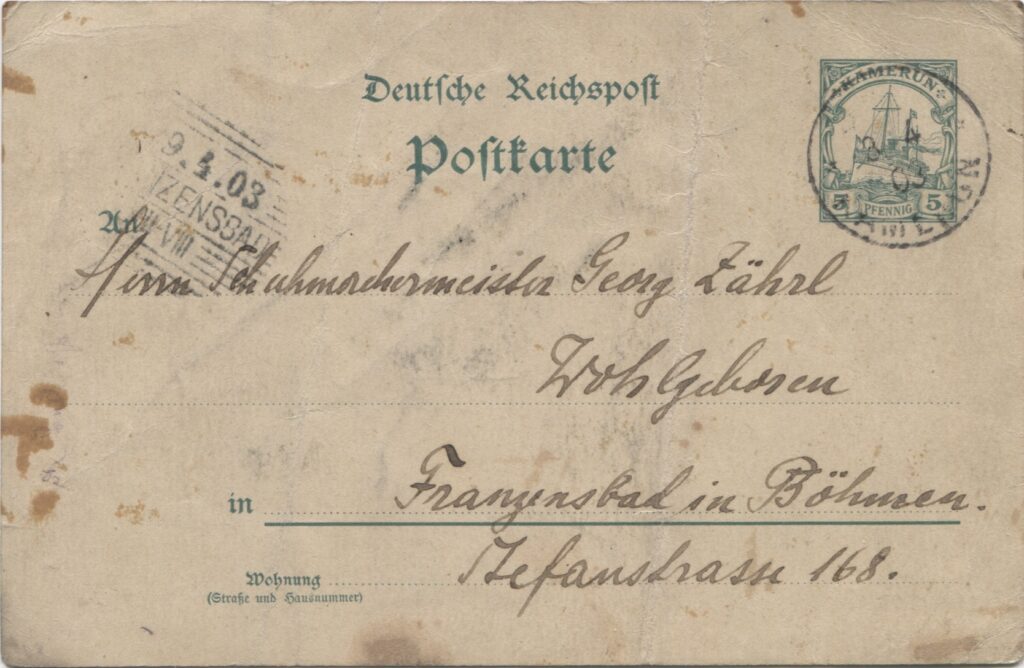 Deutsche Reichspost
Postkarte
KAMERUN
3 4
03
5 PFENNIG 5
9.4.03
ZENSBAD
VIII
An
Herrn Schuhmachermeister Georg Zährl
Wohlgeboren
in Franzensbad in Böhmen.
Stefanstrasse 168.
Wohnung
(Straße und Hausnummer)